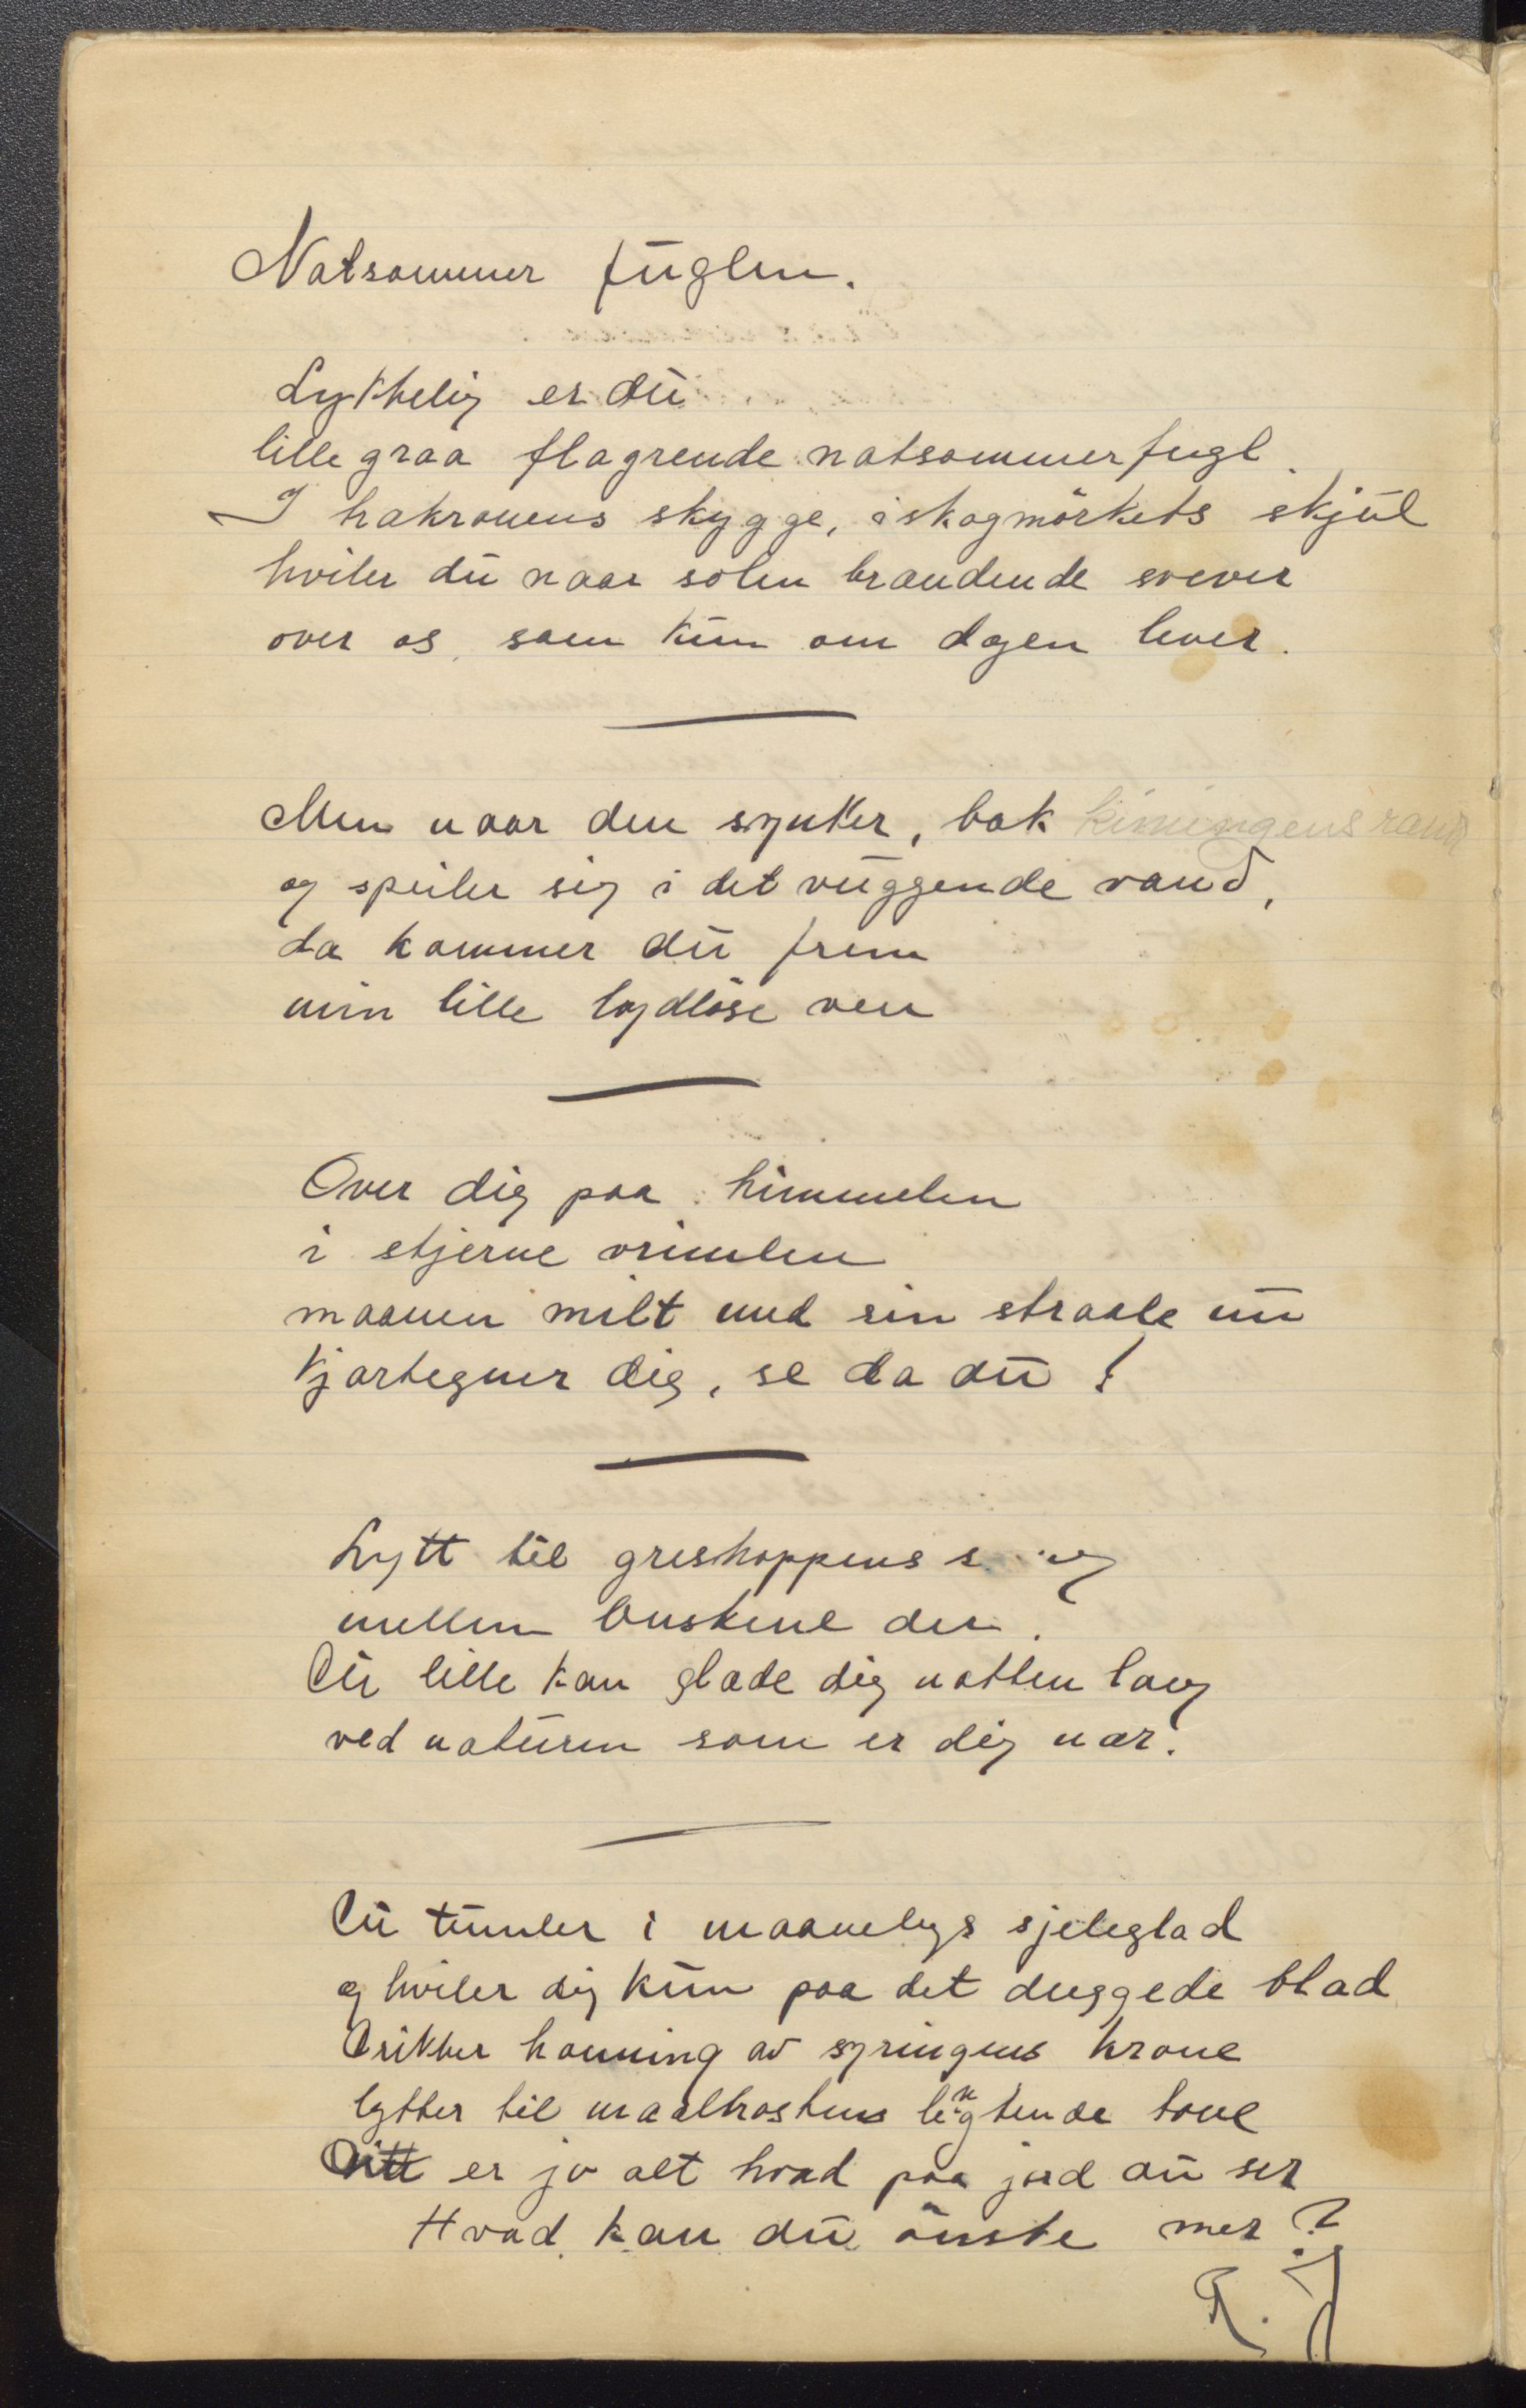 Natsommer fuglen.
Lykkelig er du
lille graa flagrende natsommerfugl.
I trakronens skygge, i skogmörkets skjul
hviler du naar solen brændende svever
over os, som kun om dagen lever.
Men naar den synker, bak kimingens rand
og speiler sig i det vuggende vand,
da kommer du frem
min lille lydløse ven
Over dig paa himmelen
i stjerne vrimlen
maanen milt med sin straale nu
kjærtegner dig, se da du!
Lytt til greshoppens
mellem buskene der.
Du lille kan glæde dig natten lang
ved naturen som er dig nær.
Du tumler i maanelys sjeleglad
og hviler dig kun paa det duggede blad
Drikker honning av syringens krone
lytter til maaltrostens tone
Ditt er jo alt hvad paa jord du ser
Hvad kan du önske mer?
R. J